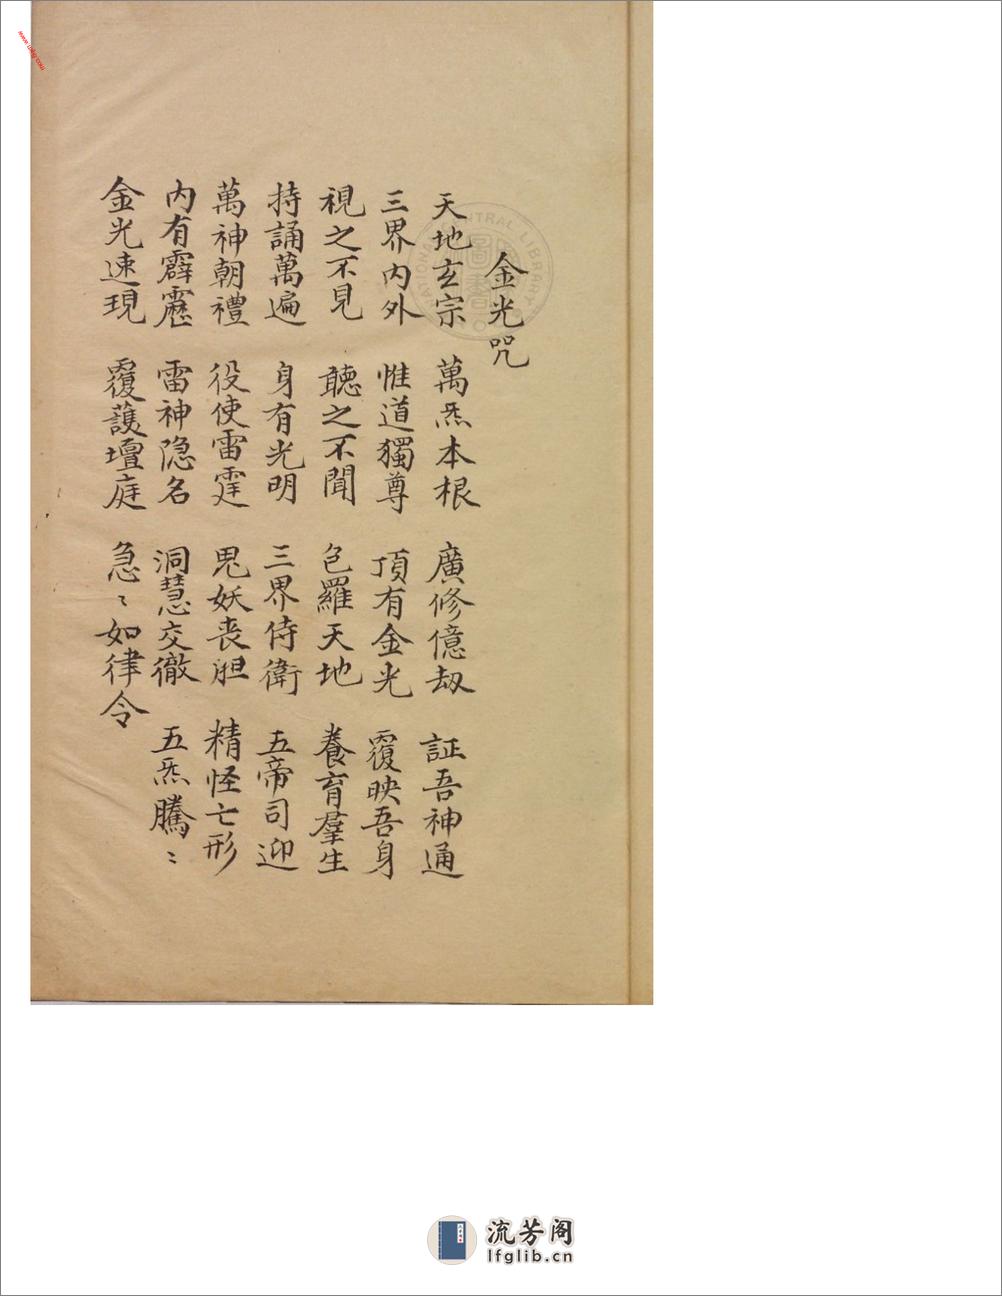 金光咒
天地玄宗 萬炁本根 廣修億劫 証吾神通
三界內外 惟道獨尊 頂有金光 覆映吾身
視之不見 聽之不聞 包羅天地 養育羣生
持誦萬遍 身有光明 三界侍衛 五帝司迎
萬神朝禮 役使雷霆 鬼妖丧胆 精怪亡形
內有霹靂 雷神隐名 洞慧交徹 五炁騰〻
金光速現 覆護壇庭 急〻如律令
NATIONAL CENTRAL LIBRARY
圖書
www.uxkg.com
流芳阁
lfglib.cn